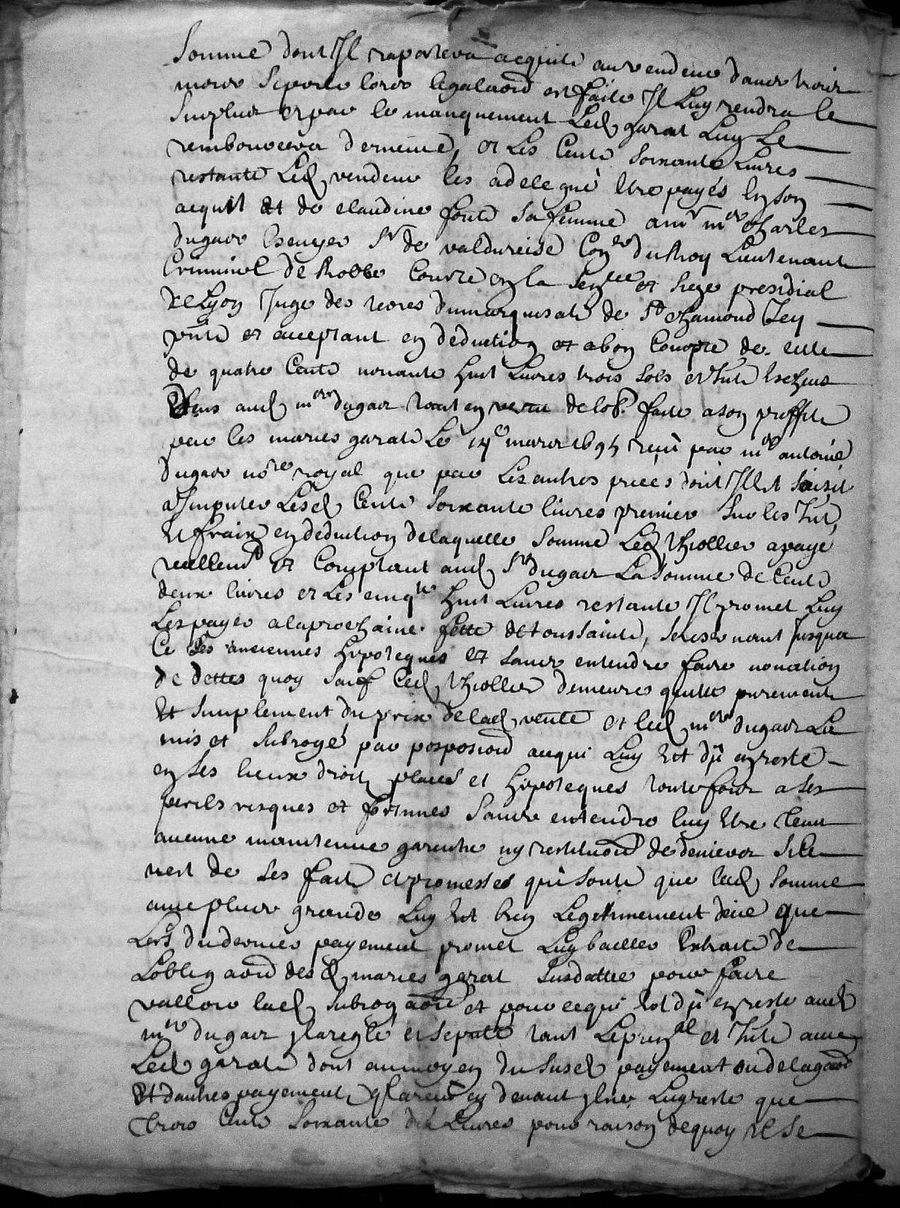 Somme dont Il raportera acquits au vendeur dans trois
mois Si pour lors legalaon est faite Il Luy rendra le
Surplus et par le manquement Led garat Luy Le
remboursera de meme, et Les Cents Soixante Livres
restante Led vendeur les a delegué Etre payés En son
acquit et de claudine font Sa femme a mr me Charles
dugas Escuyer Sr de valdureise Coner du Roy Lieutenant
Criminel de Robbe Courte en la Sencee et Siege presidial
de Lyon Juge des terres du marquisate de St chamond Icy
pnt et acceptant en déduction et a bon Compte de celle
de quatre Cents nonante huit Livres trois sols et huit
deus aud mre dugas tant en vertu de lobon faite a son proffit
par les maries garat Le mars 1695 reçu par me antoine
dugas nore royal que par Les autres pieces dont Il Est Saisit
a Imputer Lesd Cents Soixante livres premier Sur les Intr
Et fraix en déduction de laquelle Somme Led thiollier a payé
reellemt et Comptant aud Sr dugas La Somme de Cents
deux livres et Les cinqte huit Livres restante Il promet Luy
Les payer a la prochaine fette de toussaints, Se reservant Jusqua
Ce Ses anciennes hipoteques et Sans entendre faire novation
de dettes quoy fais Led thiollier demeures quitte purement
Et Simplement du prix de lad vente et led mre dugas La
mis et Subrogé par acqui Luy Est dû en reste
en Ses lieux droit places et hipoteques toute fois a Ses
perils risques et fortunes Sans entendre luy Etre tenu
aucune maintenue garentie ny restituon de deniers Si Ce
nest de Ses fait et promesses qui Sonts que lad Somme
aure plus grande Luy Est bien Legitimement deüe que
Lors du dernier payement promet Luy bailler Extrait de
Lobligaon des d maries garat Susdattee pour faire
valloir lad Subrogaon et pour ce qui Est dû en reste aud
mre dugas Il a reglé et tant Le prinal et Intr avec
Led garat dont au moyen du Susd payement ou delagaon
Et dautres payement quil a receu cy devant Il ne Luy reste que
Trois Cents Soixante dix Livres pour raison de quoy Il Se